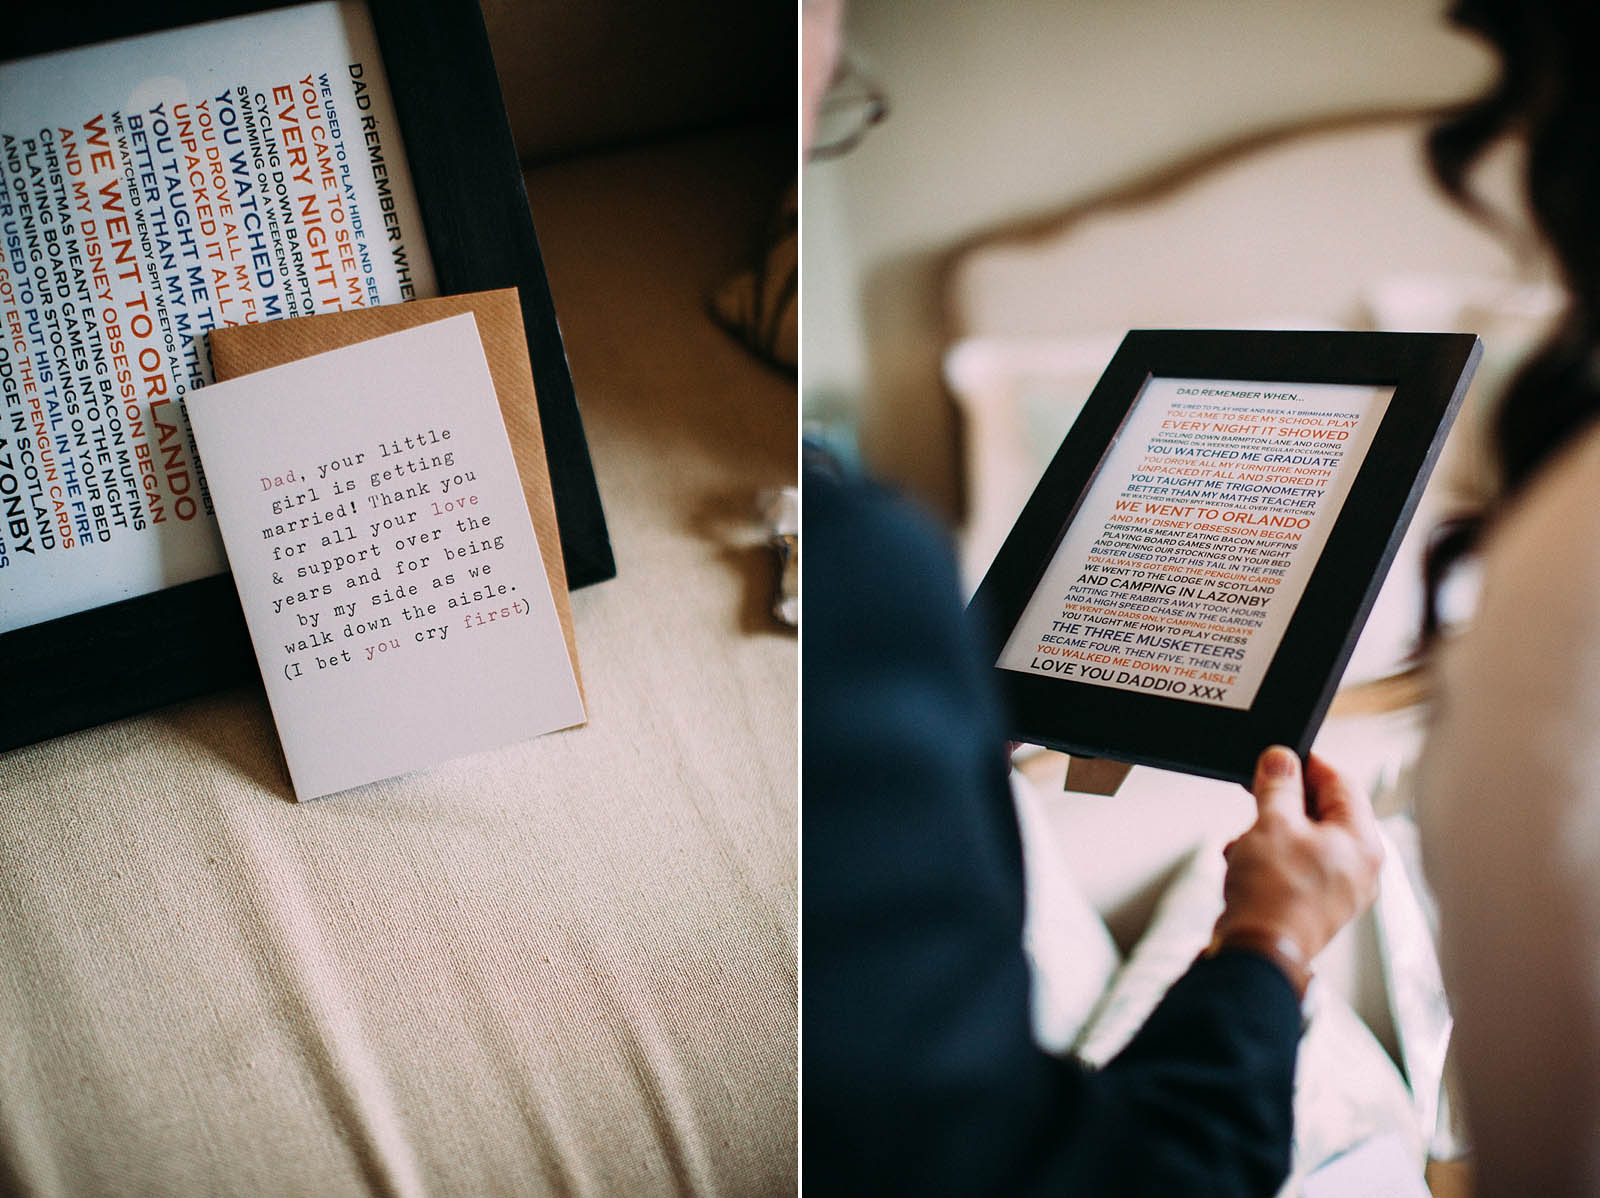 DAD REMEMBER WHE
WE USED TO PLAY HIDE AND SEE
YOU CAME TO SEE MY
EVERY NIGHT IT
CYCLING DOWN BARMPTON
SWIMMING ON A WEEKEND WERE
YOU WATCHED M
YOU DROVE ALL MY FU
UNPACKED IT ALL A
YOU TAUGHT ME TRI
BETTER THAN MY MATHS
WE WATCHED WENDY SPIT WEETOS ALL OVER THE KITCHEN
WE WENT TO ORLANDO
AND MY DISNEY OBSESSION BEGAN
CHRISTMAS MEANT EATING BACON MUFFINS
PLAYING BOARD GAMES INTO THE NIGHT
AND OPENING OUR STOCKINGS ON YOUR BED
TER USED TO PUT HIS TAIL IN THE FIRE
GOT ERIC THE PENGUIN CARDS
LODGE IN SCOTLAND
AZONBY
Dad, your little
girl is getting
married! Thank you
for all your love
& support over the
years and for being
by my side as we
walk down the aisle.
(I bet you cry first)
DAD REMEMBER WHEN...
WE USED TO PLAY HIDE AND SEEK AT BRIMHAM ROCKS
YOU CAME TO SEE MY SCHOOL PLAY
EVERY NIGHT IT SHOWED
CYCLING DOWN BARMPTON LANE AND GOING
SWIMMING ON A WEEKEND WERE REGULAR OCCURANCES
YOU WATCHED ME GRADUATE
YOU DROVE ALL MY FURNITURE NORTH
UNPACKED IT ALL AND STORED IT
YOU TAUGHT ME TRIGONOMETRY
BETTER THAN MY MATHS TEACHER
WE WATCHED WENDY SPIT WEETOS ALL OVER THE KITCHEN
WE WENT TO ORLANDO
AND MY DISNEY OBSESSION BEGAN
CHRISTMAS MEANT EATING BACON MUFFINS
PLAYING BOARD GAMES INTO THE NIGHT
AND OPENING OUR STOCKINGS ON YOUR BED
BUSTER USED TO PUT HIS TAIL IN THE FIRE
YOU ALWAYS GOT ERIC THE PENGUIN CARDS
WE WENT TO THE LODGE IN SCOTLAND
AND CAMPING IN LAZONBY
PUTTING THE RABBITS AWAY TOOK HOURS
AND A HIGH SPEED CHASE IN THE GARDEN
WE WENT ON DADS ONLY CAMPING HOLIDAYS
YOU TAUGHT ME HOW TO PLAY CHESS
THE THREE MUSKETEERS
BECAME FOUR, THEN FIVE, THEN SIX
YOU WALKED ME DOWN THE AISLE
LOVE YOU DADDIO XXX